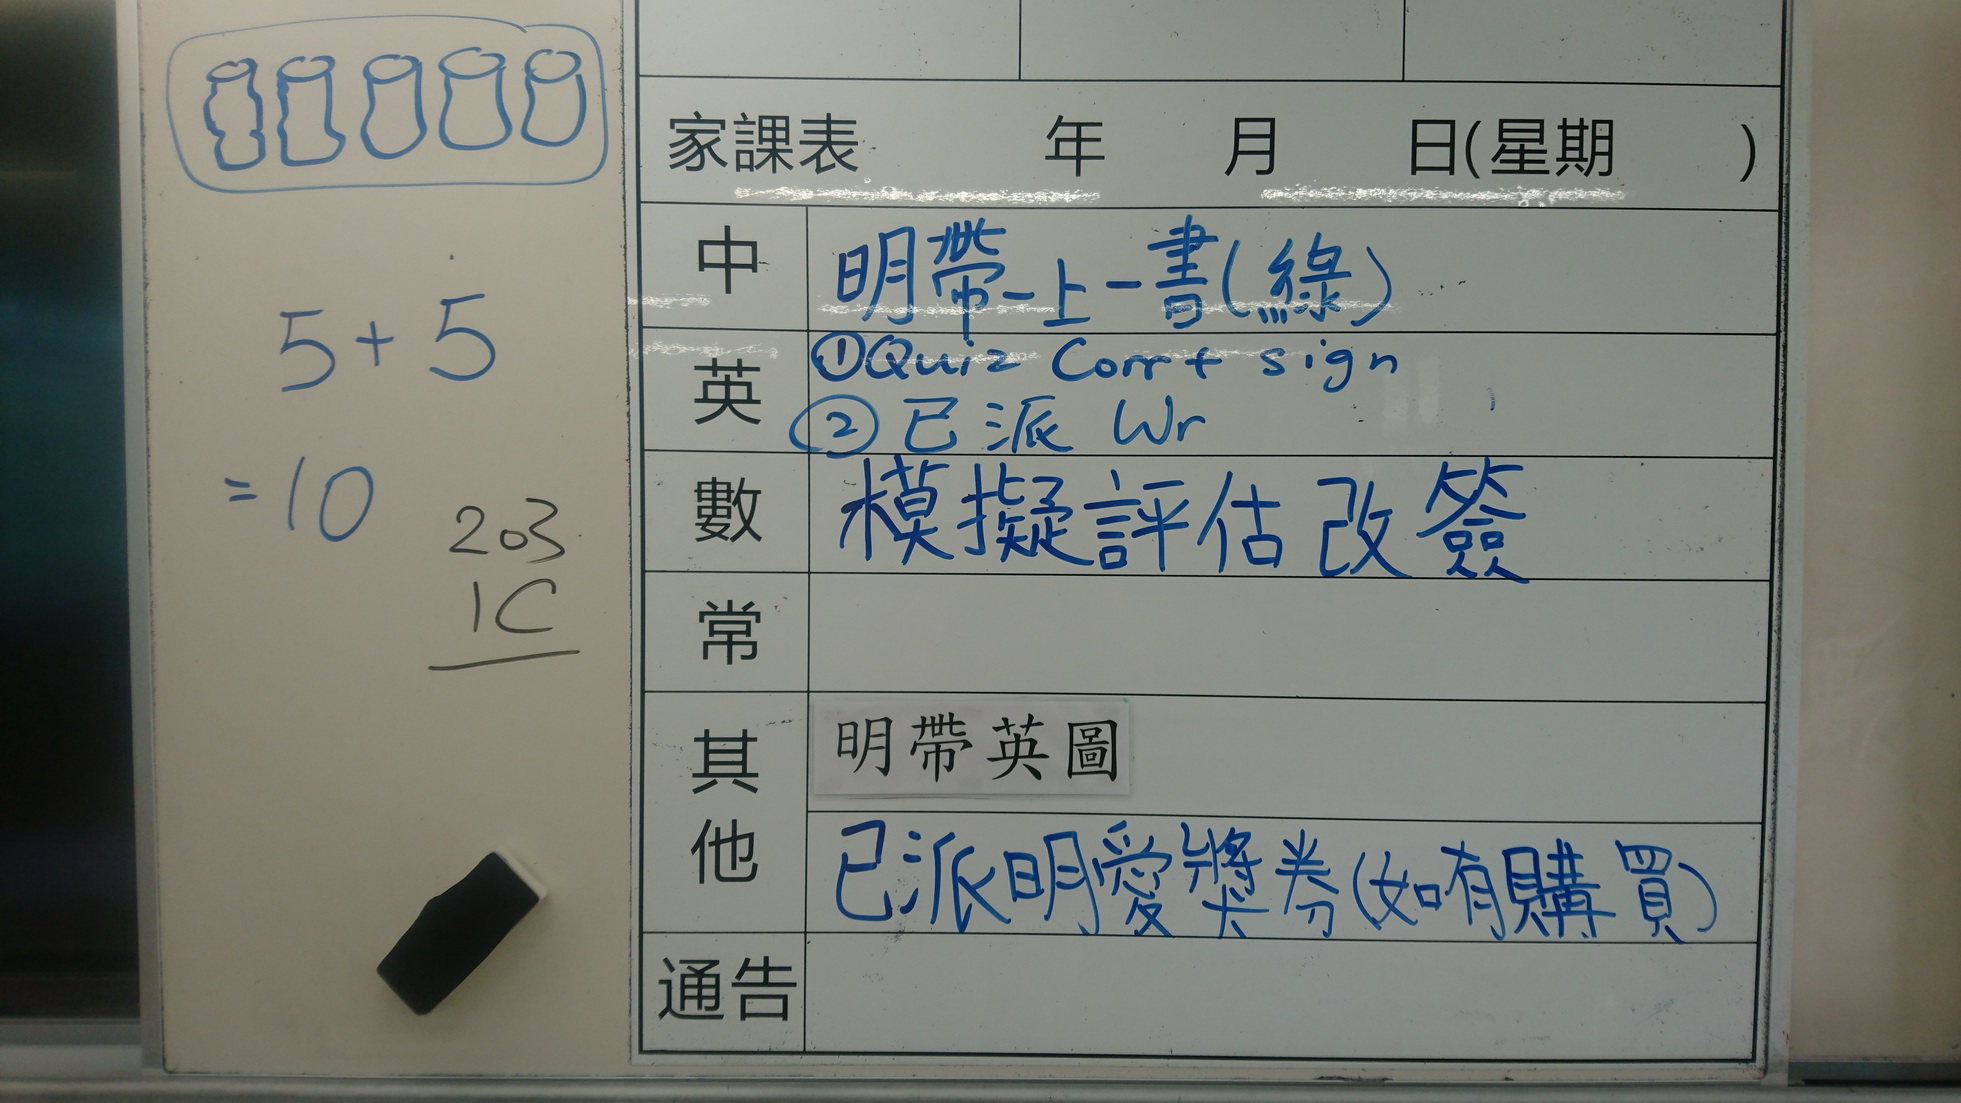 5+5
=10
203
1C
家課表 年 月 日(星期 )
中 明帶一上一書(綠)
英 ①Quiz Corr+ sign
②已派 Wr
數 模擬評估改簽
常
其他 明帶英圖
已派明愛獎券(如有購買)
通告